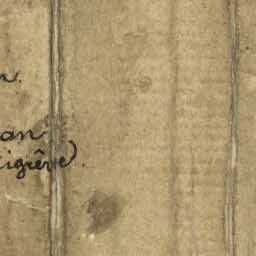 n.
an
igrêve).